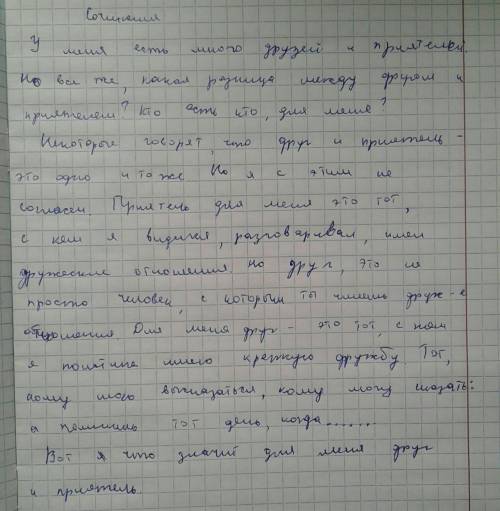 Сочинения
У меня есть много друзей и приятелей.
Но все же, какая разница между другом и
приятелем? Кто есть кто, для меня?
Некоторые говорят, что друг и приятель -
это одно и то же Но я с этим не
согласен. Приятель для меня это тот,
с кем я виделся, разговаривал, имел
дружеские отношения. Но друг, это не
просто человек, с которым ты имеешь друж-е
отношения. Для меня друг - это тот, с кем
я имею крепкую дружбу Тот,
кому могу высказаться, кому могу сказать:
а помнишь тот день, когда.......
Вот и что значит для меня друг
и приятель.